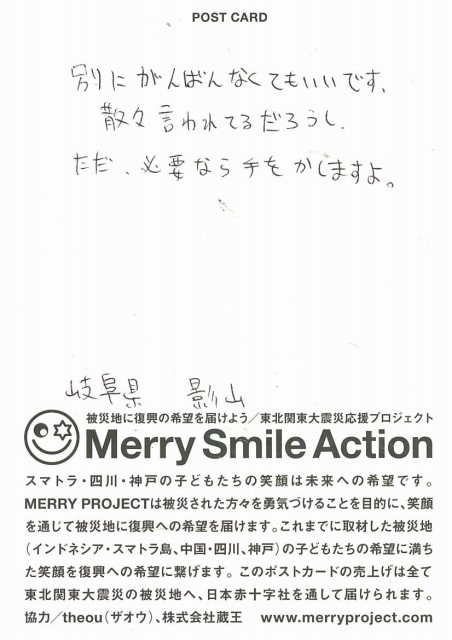 POST CARD
別にがんばんなくてもいいです、
散々言われてるだろうし、
ただ、必要なら手をかしますよ。
岐阜県 影山
被災地に復興の希望を届けよう／東北関東大震災応援プロジェクト
Merry Smile Action
スマトラ・四川・神戸の子どもたちの笑顔は未来への希望です。
MERRY PROJECTは被災された方々を勇気づけることを目的に、笑顔
を通じて被災地に復興への希望を届けます。これまでに取材した被災地
（インドネシア・スマトラ島、中国・四川、神戸）の子どもたちの希望に満ち
た笑顔を復興への希望に繋げます。このポストカードの売上げは全て
東北関東大震災の被災地へ、日本赤十字社を通して届けられます。
協力／theou（ザオウ）、株式会社蔵王 www.merryproject.com